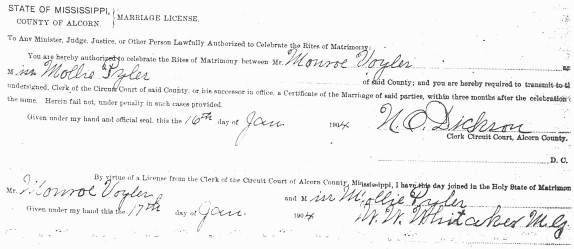 STATE OF MISSISSIPPI,
COUNTY OF ALCORN.
MARRIAGE LICENSE.
To Any Minister, Judge, Justice, or Other Person Lawfully Authorized to Celebrate the Rites of Matrimony:
You are hereby authorized to celebrate the Rites of Matrimony between Mr. Monroe Voyler
Miss Mollie Pyler of said County; and you are hereby required to transmit to th
undersigned, Clerk of the Circuit Court of said County, or his successor in office, a Certificate of the Marriage of said parties, within three months after the celebration
the same. Herein fail not, under penalty in such cases provided.
Given under my hand and official seal, this the 16th day of Jan 1904 N. O. Dickson
Clerk Circuit Court, Alcorn County.
D. C.
By virtue of a License from the Clerk of the Circuit Court of Alcorn County, Mississippi, I have this day joined in the Holy State of Matrimon
Mr. Monroe Voyler and Miss Mollie Pyler
Given under my hand this the 17th day of Jan. 1904 W. W. Whitaker M.G.